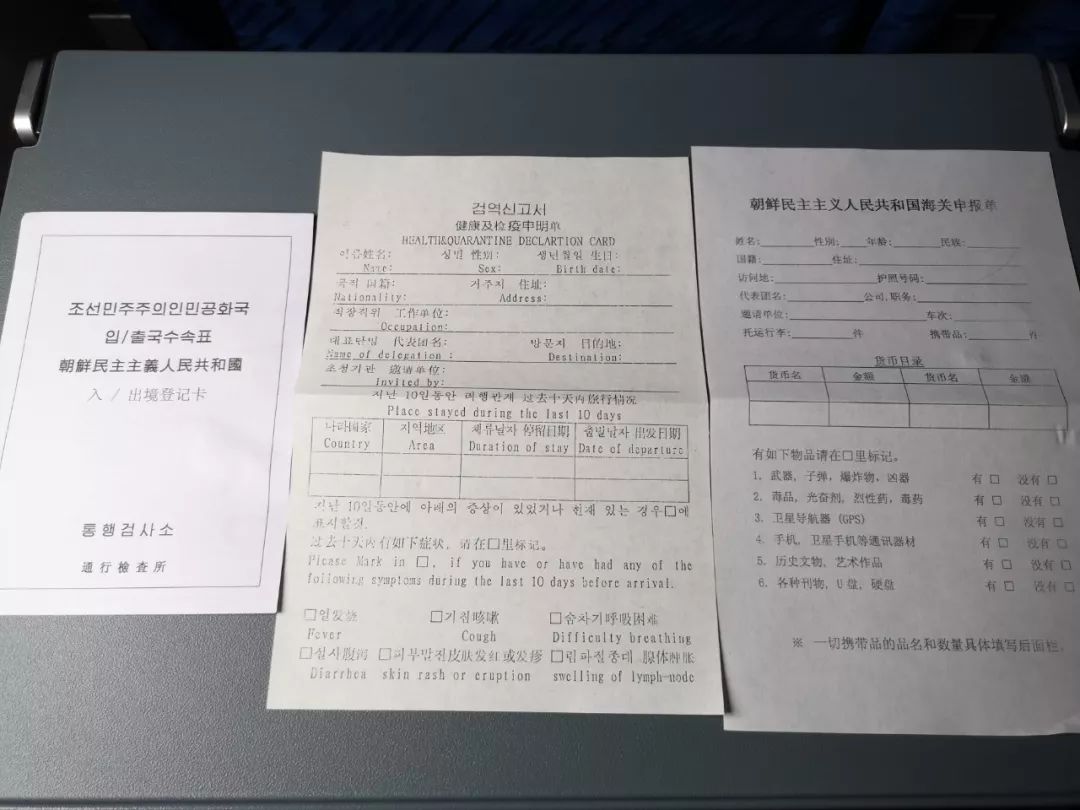 조선민주주의인민공화국
입/출국수속표
朝鮮民主主義人民共和國
入 / 出境登记卡
통행검사소
通行檢查所
검역신고서
健康及检疫申明单
HEALTH&QUARANTINE DECLARTION CARD
이름姓名: 성별 性别: 생년월일 生日:
Name: Sex: Birth date:
국적 国籍: 거주지 住址:
Nationality: Address:
직장직위 工作单位:
Occupation:
대표단명 代表团名: 방문지 目的地:
Name of delegation : Destination:
초청기관 邀请单位:
Invited by:
지난 10일동안 려행관계 过去十天内旅行情况
Place stayed during the last 10 days
나라国家 지역地区 체류날자 停留日期 출발날자 出发日期
Country Area Duration of stay Date of departure
지난 10일동안에 아래의 증상이 있었거나 현재 있는 경우□에
표시할것.
过去十天内有如下症状, 请在□里标记。
Please Mark in □, if you have or have had any of the
following symptoms during the last 10 days before arrival.
□열发烧 □기침咳嗽 □숨차기呼吸困难
Fever Cough Difficulty breathing
□설사腹泻 □피부발진皮肤发红或发疹 □림파절종대 腺体肿胀
Diarrhea skin rash or eruption swelling of lymph-node
朝鲜民主主义人民共和国海关申报单
姓名: 性别: 年龄: 民族:
国籍: 住址:
访问地: 护照号码:
代表团名: 公司,职务:
邀请单位: 车次:
托运行李: 件 携带品: 件
货币目录
货币名 金额 货币名 金额
有如下物品请在□里标记。
1. 武器, 子弹, 爆炸物, 凶器 有 □ 没有 □
2. 毒品, 兴奋剂, 烈性药, 毒药 有 □ 没有 □
3. 卫星导航器 (GPS) 有 □ 没有 □
4. 手机, 卫星手机等通讯器材 有 □ 没有 □
5. 历史文物, 艺术作品 有 □ 没有 □
6. 各种刊物, U盘, 硬盘 有 □ 没有 □
※ 一切携带品的品名和数量具体填写后面栏.